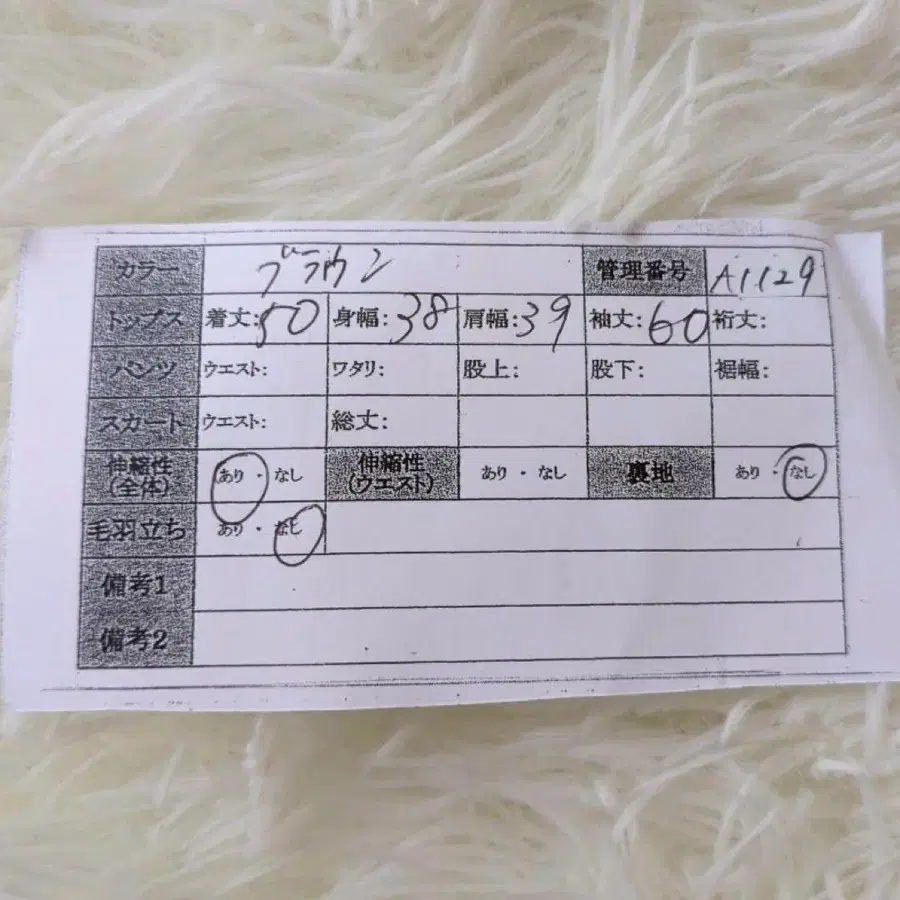 カラー ブラウン 管理番号 A1129
トップス 着丈:50 身幅:38 肩幅:39 袖丈:60 裄丈:
パンツ ウエスト: ワタリ: 股上: 股下: 裾幅:
スカート ウエスト: 総丈:
伸縮性(全体) あり・なし 伸縮性(ウエスト) あり・なし 裏地 あり・なし
毛羽立ち あり・なし
備考1
備考2